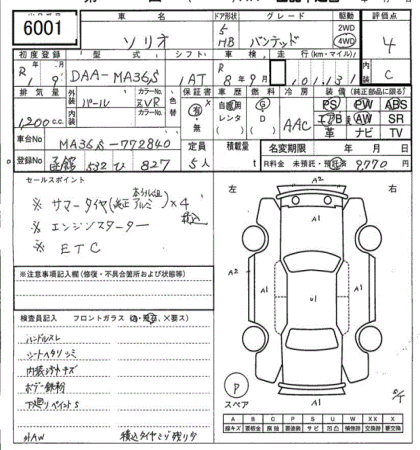 6001
車名 ドア形状 グレード 駆動 評価点
ソリオ 5 HB バンデット 2WD 4WD 4
初度登録 型式 シフト 車検 走行(km・マイル) 内装
R 1 9 DAA-MA36S IAT R 8年9月 101,131 C
排気量 外装 パール カラーNo. ZVR 色替 保証書 車歴 燃料 冷房 装備(純正部品に限る)
1,200 c.c. 内装 カラーNo. 有・無 自家用 レンタ G D AAC PS PW ABS
エアB AW SR
革 ナビ TV
車台No MA36S-772840 定員 積載量 名変期限 年 月 日
登録No 函館 502 ひ 827 5人 t R料金 未預託・預託済 9,770 円
セールスポイント
※ サマータイヤ(純正アルミ)×4 積込
※ エンジンスターター
※ ETC
※注意事項記入欄(修復・不具合箇所および状態等)
検査員記入 フロントガラス
ハンドルスレ
シートヘタリ シミ
内装
ボデー鉄粉
下廻りペイントS
外AW 積込タイヤミゾ残り
左 右
A1
A2 A2
A1 U1 A1
A1
P
スペア
A B C P S U W X XX
線キズ 腐食 要塗装 サビ 凹凸 補修跡 交換跡 要交換